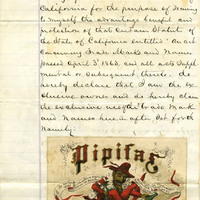 California for the purpose of securing
to myself the advantage benefit and
protection of that certain Statute of
the State of California entitled "An act
concerning Trade Marks and Names"
passed April 3d 1863, and all acts supple-
mental or subsequent thereto. do
hereby declare that I am the ex-
clusive owner and do hereby claim
the exclusive right to use Mark
and Names herein after set forth
Namely
Pipifax